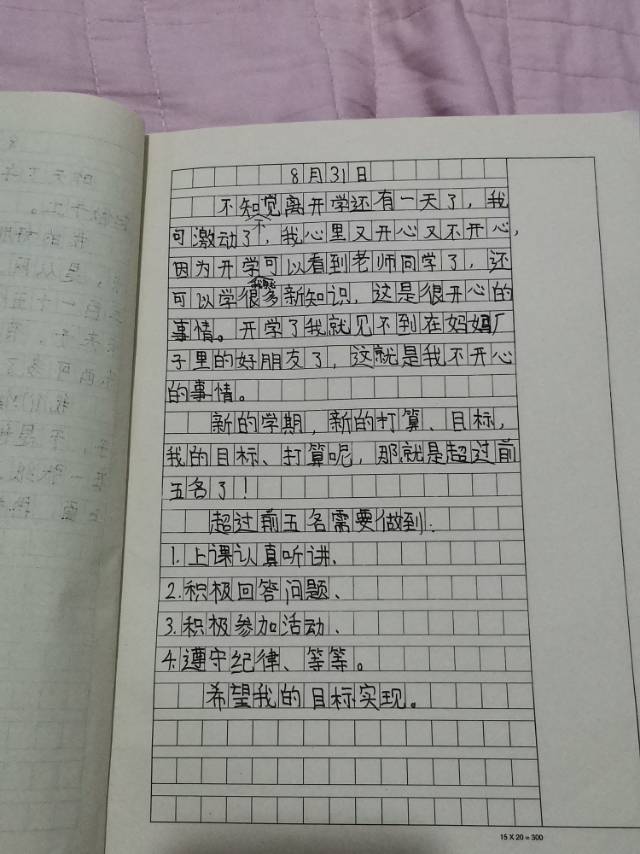 8月31日
不知不觉离开学还有一天了，我
可激动了，我心里又开心又不开心，
因为开学可以看到老师同学了，还
可以学很多新知识，这是很开心的
事情。开学了我就见不到在妈妈厂
子里的好朋友了，这就是我不开心
的事情。
新的学期，新的打算、目标，
我的目标、打算呢，那就是超过前
五名了！
超过前五名需要做到：
1.上课认真听讲、
2.积极回答问题、
3.积极参加活动、
4.遵守纪律、等等。
希望我的目标实现。
15×20=300